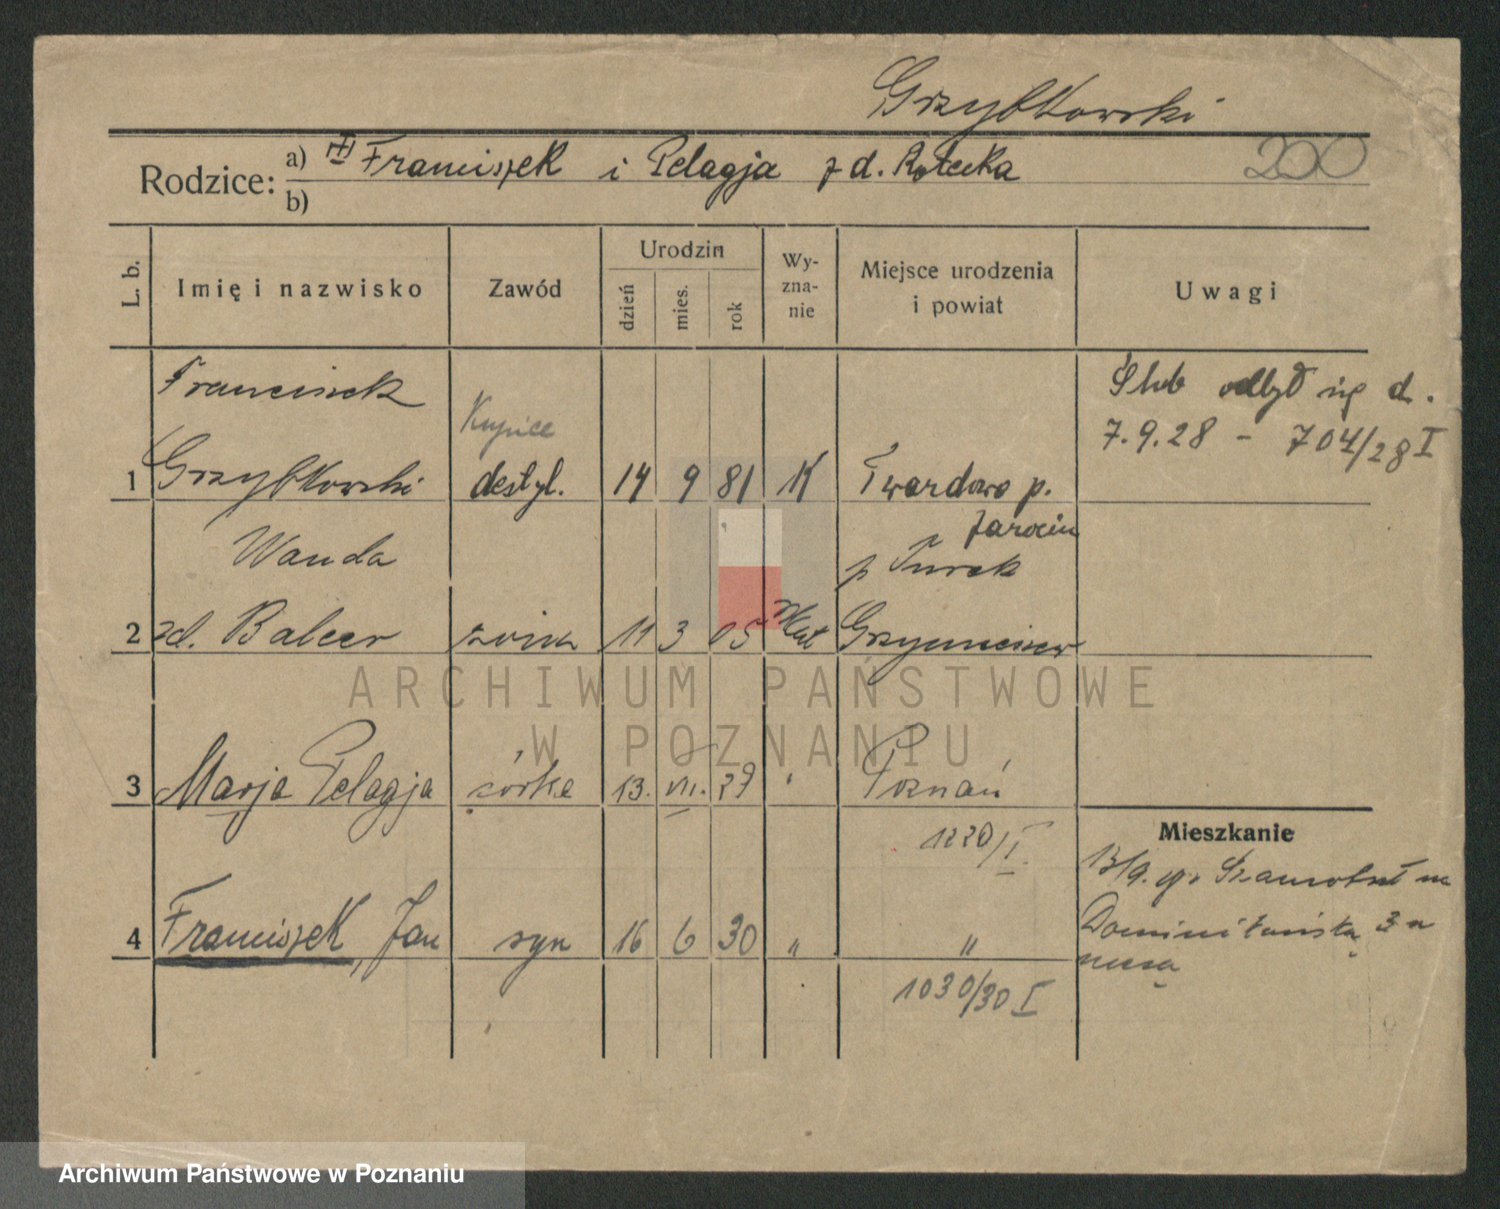 Grzybkowski
200
Rodzice: a) Franciszek i Pelagja z d. Rotecka
b)
L. b. Imię i nazwisko Zawód Urodzin dzień mies. rok Wyznanie Miejsce urodzenia i powiat Uwagi
Franciszek Kupiec Ślub odbył się d.
7.9.28 - 704/28 I
1 Grzybkowski destyl. 14 9 81 K Twardowo p.
Jarocin
Wanda p Turek
2 zd. Balcer żona 11 3 05 Kat Grzymiszew
ARCHIWUM PAŃSTWOWE
W POZNANIU
3 Marja Pelagja córka 13. VII. 29 " Poznań
1220/I.
Mieszkanie
13/9. Szamotuł na
4 Franciszek, Jan syn 16 6 30 " "
Dominikańska 3
1030/30 I
Archiwum Państwowe w Poznaniu